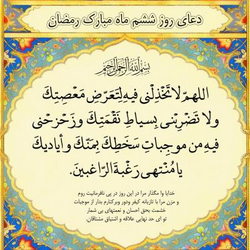 دعای روز ششم ماه مبارک رمضان
بسم الله الرحمن الرحیم
اللهم لا تخذلنی فیه لتعرض معصیتك
ولا تضربنی بسیاط نقمتك و زحزحنی
فیه من موجبات سخطك بمنك و أیادیك
یا منتهی رغبة الراغبین.
خدایا وا مگذار مرا در این روز در پی نافرمانیت روم
و مزن مرا با تازیانه کیفر ودور وبرکنارم بدار از موجبات
خشمت بحق احسان و نعمتهای بی شمار
تو ای حد نهایی علاقه و اشتیاق مشتاقان.